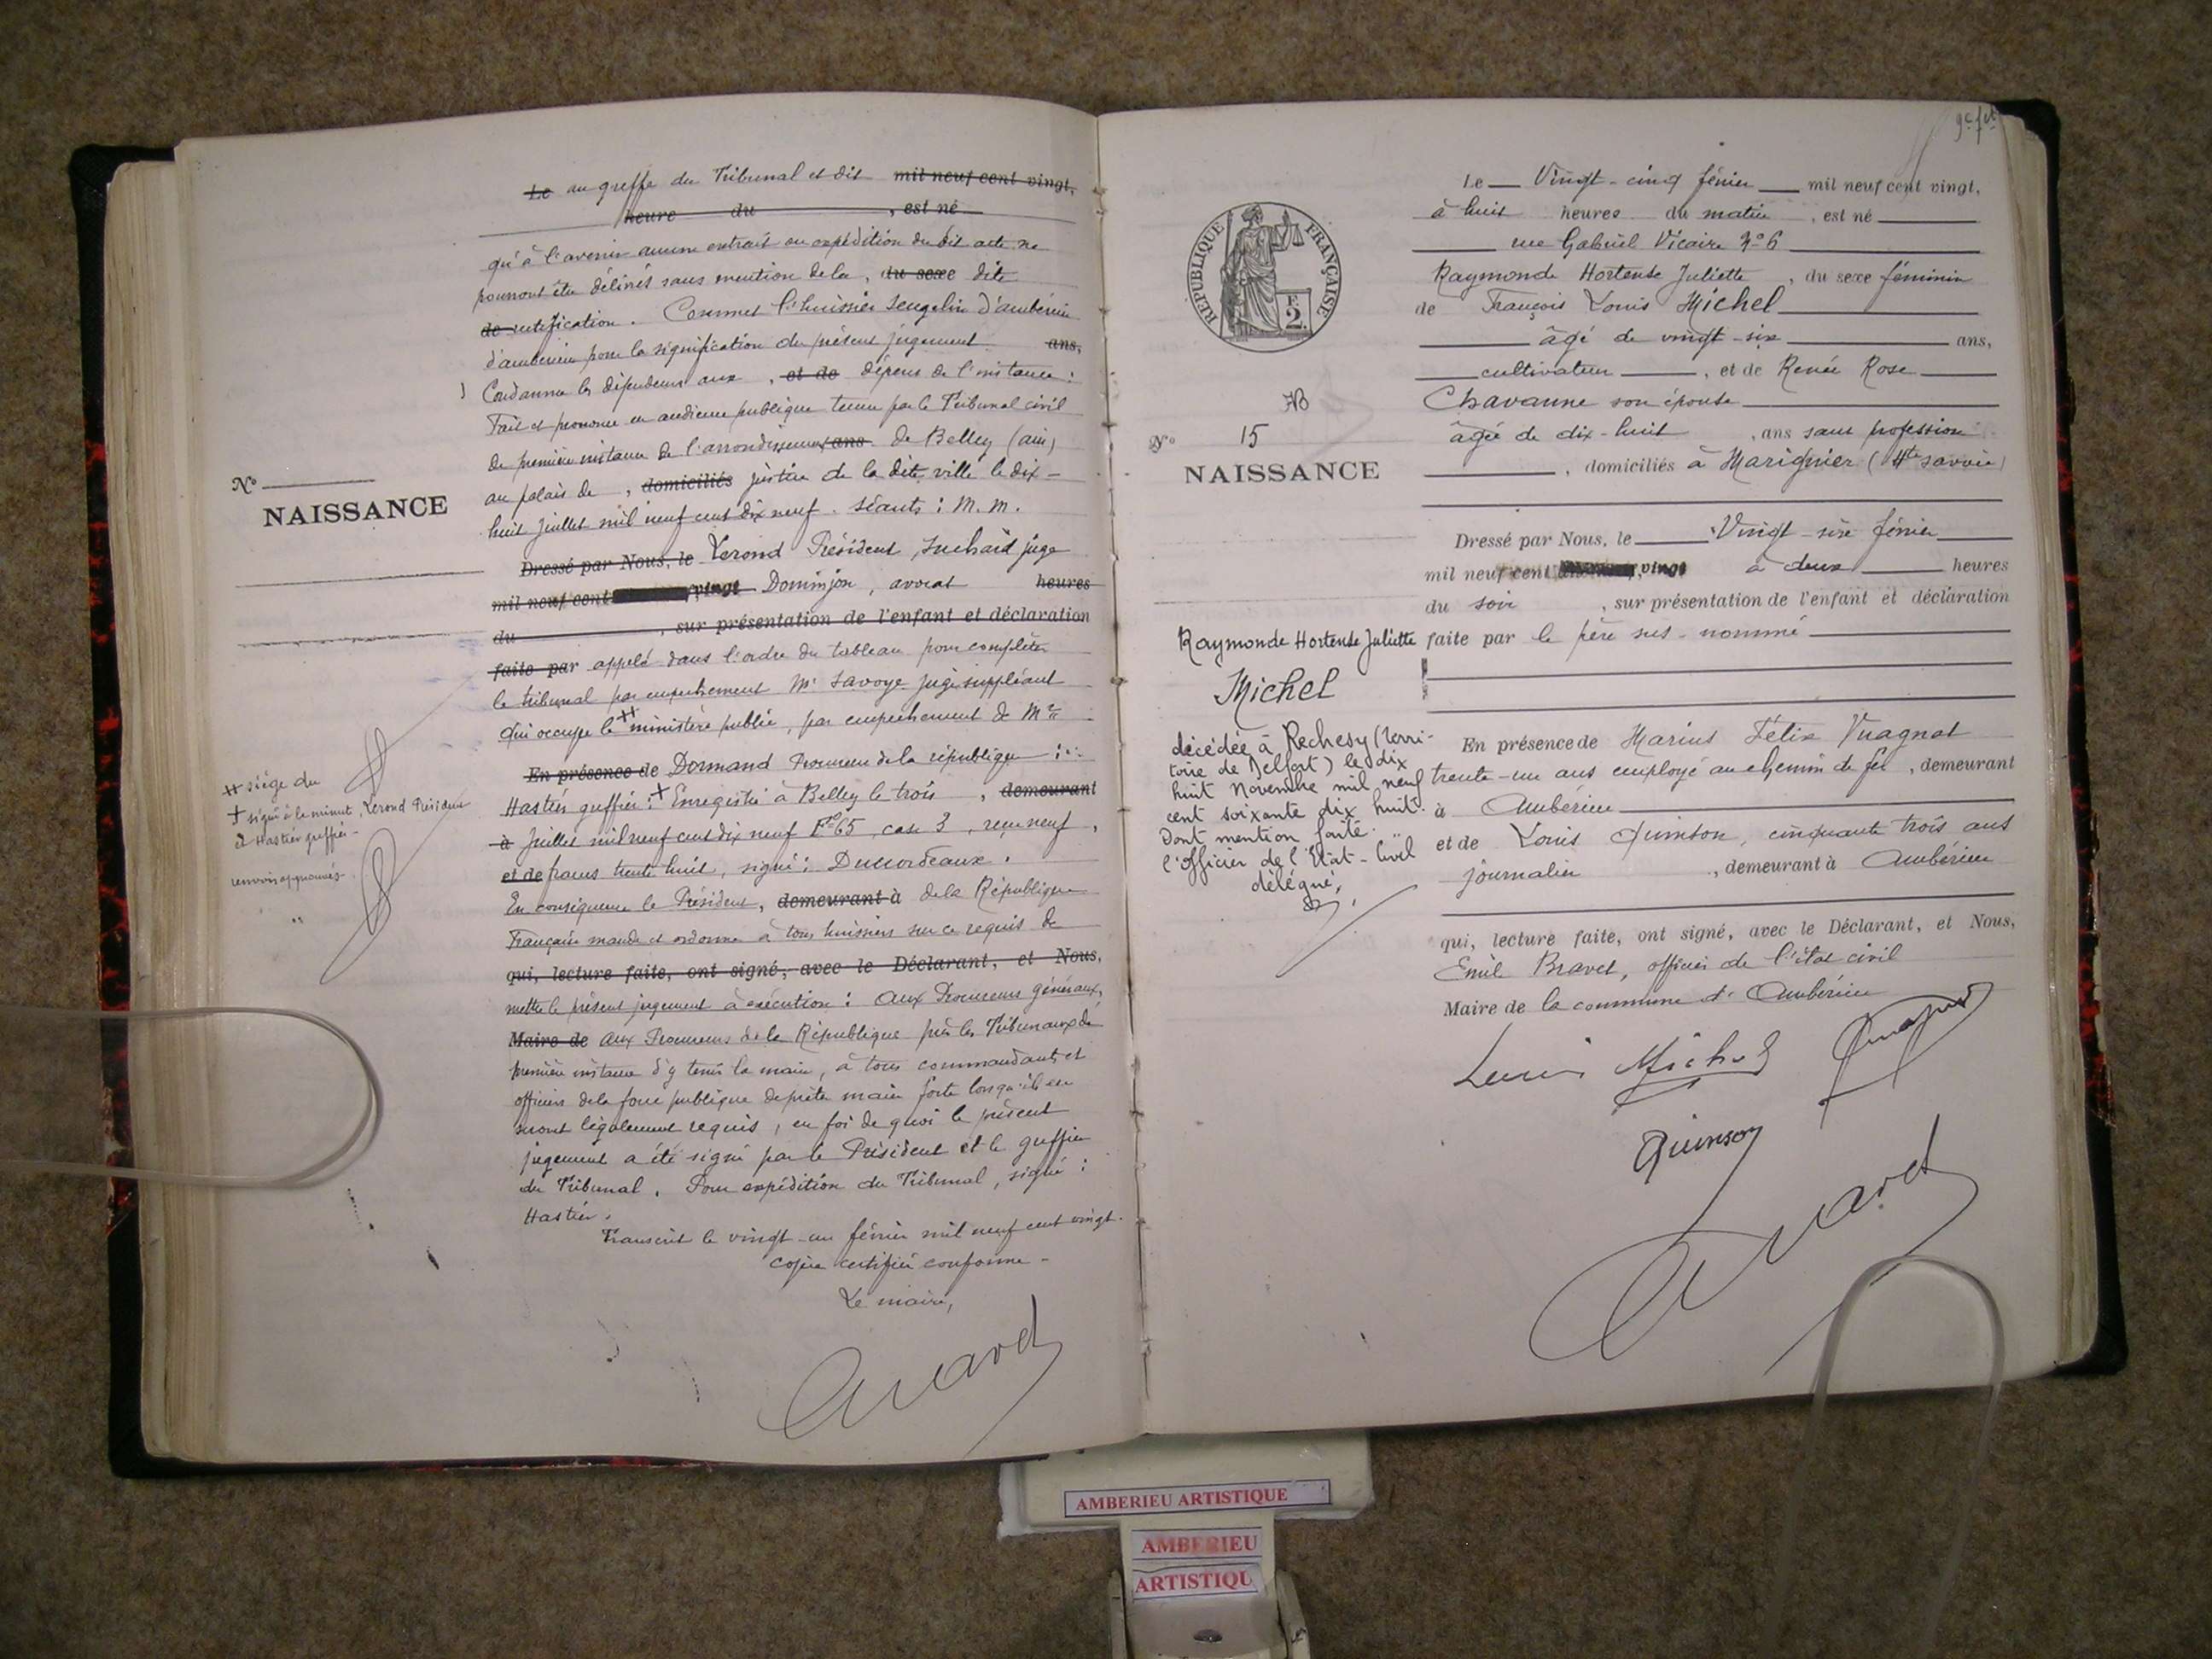 Le au greffe du Tribunal et dit mil neuf cent vingt,
heure du , est né
qu'à l'avenir aucun extrait ou expédition du dit acte ne
pourront être délivrés sans mention de la , du sexe dite
de rectification. Commet l'huissier d'ambérieu
d'ambérieu pour la signification du présent jugement ans,
Condamne les défendeurs aux , et de dépens de l'instance :
Fait et prononcé en audience publique tenue par le Tribunal civil
de première instance de l'arrondissement ans de Belley (ain)
au palais de , domiciliés justice de la dite ville le dix-
huit juillet mil neuf cent dix neuf. séants : M. M.
Dressé par Nous, le Verond Président, juge
mil neuf cent vingt Dominjon, avocat heures
du , sur présentation de l'enfant et déclaration
faite par appelé dans l'ordre du tableau pour compléter
le tribunal par empêchement Mr Savoye juge suppléant
qui occupe le ++ ministère public, par empêchement de Mr
En présence de Dormand Procureur de la république :
Hastier greffier : + Enregistré à Belley le trois , demeurant
à Juillet mil neuf cent dix neuf Fo 65 case 3, reçu neuf,
et de francs trente huit, signé : Ducordeaux.
En conséquence le Président, demeurant à de la République
Française mande et ordonne à tous huissiers sur ce requis de
qui, lecture faite, ont signé, avec le Déclarant, et Nous,
mettre le présent jugement à exécution : aux Procureurs généraux,
Maire de aux Procureurs de la République près les Tribunaux de
première instance d'y tenir la main, à tous commandants et
officiers de la force publique de prêter main forte lorsqu'ils en
seront légalement requis, en foi de quoi le présent
jugement a été signé par le Président et le greffier
du Tribunal. Pour expédition du Tribunal, signé :
Hastier.
Transcrit le vingt-un février mil neuf cent vingt.
copie certifiée conforme -
Le maire,
No
NAISSANCE
++ siège du
+ signé à la minute, Verond Président
et Hastier greffier -
renvois approuvés -
9e fet
REPUBLIQUE FRANÇAISE
F.
2.
No 15
NAISSANCE
Raymonde Hortense Juliette
Michel
décédée à Rechesy (Terri-
toire de Belfort) le dix
huit Novembre mil neuf
cent soixante dix huit.
Dont mention faite.
l'officier de l'Etat-Civil
délégué,
Le Vingt-cinq février mil neuf cent vingt,
à huit heures du matin , est né
rue Gabriel Vicaire No 6
Raymonde Hortense Juliette , du sexe féminin
de François Louis Michel
âgé de vingt-six ans,
cultivateur , et de Renée Rose
Chavanne son épouse
âgée de dix-huit , ans sans profession
, domiciliés à Marignier (Hte savoie)
Dressé par Nous, le Vingt-six février
mil neuf cent vingt à deux heures
du soir , sur présentation de l'enfant et déclaration
faite par le père sus-nommé
En présence de Marius Félix Vuagnat
trente-un ans employé au chemin de fer , demeurant
à Ambérieu
et de Louis Quinson, cinquante trois ans
journalier , demeurant à Ambérieu
qui, lecture faite, ont signé, avec le Déclarant, et Nous,
Emile Bravet, officier de l'état civil
Maire de la commune d'Ambérieu
Louis Michel
Quinson
AMBERIEU ARTISTIQUE
AMBERIEU
ARTISTIQU